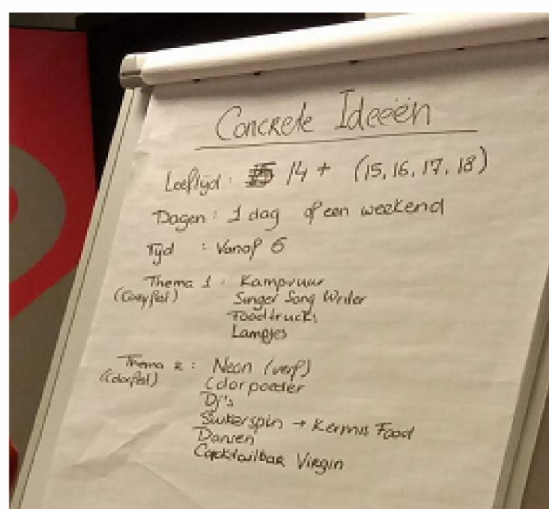 Concrete Ideeën
Leeftijd : 14 + (15, 16, 17, 18)
Dagen : 1 dag of een weekend
Tijd : Vanaf 6
Thema 1 : Kampvuur
(Cosyfest) Singer Song Writer
Foodtrucks
Lampjes
Thema 2 : Neon (verf)
(Colorfest) Colorpoeder
Dj's
Suikerspin → Kermis Food
Dansen
Cocktailbar Virgin